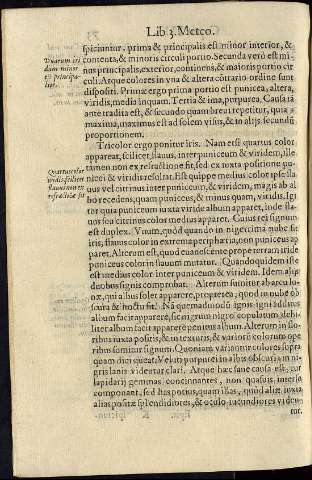 Lib 3. Meteo.
spiciuntur, prima & principalis est minor interior, &
contenta, & minoris circuli portio. Secunda verò est mi-
nus principalis, exterior, continens, & maioris portio cir
culi. Atque colores in vna & altera cõtrario ordine sunt
dispositi. Primæ ergo prima portio est punicea, altera,
viridis, media inquam. Tertia & ima, purpurea. Causa iã
ante tradita est, & secundo quam breui repetitur, quia a
maxima, maximus est ad solem visus, & in alijs secundũ
proportionem.
Tricolor ergo ponitur iris. Nam etsi quartus color
appareat, scilicet flauus, inter puniceum & viridem, ille
tamen non ex refractione fit, sed ex iuxta positione pu-
nicei & viridis resultat. Est quippe medius color ipse fla
uus vel citrinus inter puniceum, & viridem, magis ab al
bo recedens, quam puniceus, & minus quam, viridis. Igi
tur quia puniceum iuxta viride album apparet, inde fla-
uus seu citrinus color medius apparet. Cuius rei signum
est duplex. Vnum, quòd quando in nigerrima nube fit
iris, flauus color in extrema peripheria, non puniceus ap
paret. Alterum est, quod euanescente prope terram iride
puniceus color in flauum mutatur. Quandoquidem is̃te
est medius color inter puniceum & viridem. Idem alijs
duobus signis comprobat. Alterum sumitur ab arcu lu-
næ, qui albus solet apparere, propterea, quod in nube ob
scura & noctu fit. Nã quemadmodũ ignis igni additus
album facit apparere, sic nigrum nigro copulatum, debi
liter album facit apparere penitus album. Alterum in flo-
ribus iuxta positis, & in texturis, & varioru͂ colorum ope
ribus somitur signum. Quoniam varij intur colores supra
quam dici queat. Veluti purpurei in albis obscuri, in ni-
gris lanis videntur clari. Atque hæc sane causa est, cur
lapidarij gemmas concinnantes, non quasuis, inter se
componant, sed has potius, quam illas, quòd aliæ iuxta
alias positæ splendidiores, & oculo iucundiores viden-
tur.
Duarum iri
dum minor
est principa-
lior.
Quartus color
iridis, scilicet
flauus non ex
refractione fit